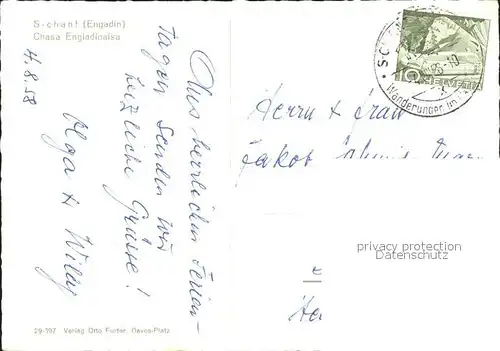 S-chanf (Engadin)
Chasa Engiadinaisa
4.8.58
Aus herrlichen Ferien-
tagen senden wir
herzliche Grüsse!
Olga & Willy
29-397 Verlag Otto Furter, Davos-Platz
10 HELVETIA
Wanderungen im
Herrn & Frau
Jakob
privacy protection
watermark